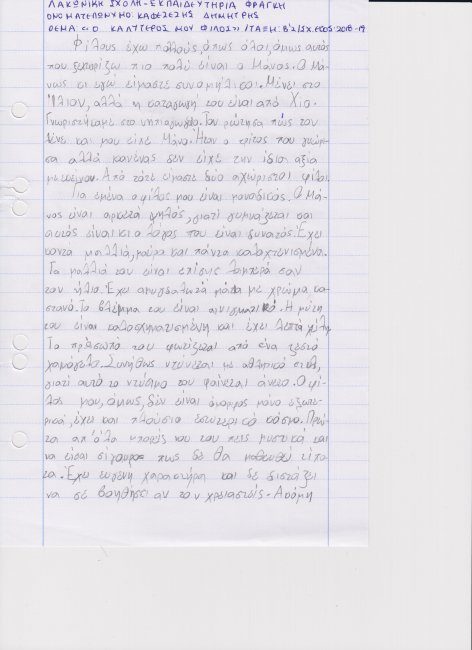 ΛΑΚΩΝΙΚΗ ΣΧΟΛΗ-ΕΚΠΑΙΔΕΥΤΗΡΙΑ ΦΡΑΓΚΗ
ΟΝΟΜΑΤΕΠΩΝΥΜΟ: ΚΑΦΕΖΕΖΗΣ ΔΗΜΗΤΡΗΣ
ΘΕΜΑ: «Ο ΚΑΛΥΤΕΡΟΣ ΜΟΥ ΦΙΛΟΣ» /ΤΑΞΗ: Β'2/ΣΧ.ΕΤΟΣ: 2018-19
Φίλους έχω πολλούς, όπως όλοι, όμως αυτός
που ξεχωρίζω πιο πολύ είναι ο Μάνος. Ο Μά-
νος κι εγώ είμαστε συνομήλικοι. Μένει στο
Ίλιον, αλλά η καταγωγή του είναι από Χίο.
Γνωριστήκαμε στο νηπιαγωγείο. Τον ρώτησα πώς τον
λένε και μου είπε Μάνο. Ήταν ο τρίτος που γνώρι-
σα αλλά κανένας δεν είχε την ίδια αξία
με εκείνον. Από τότε είμαστε δύο αχώριστοι φίλοι.
Για εμένα ο φίλος μου είναι μοναδικός. Ο Μά-
νος είναι αρκετά ψηλός, γιατί γυμνάζεται και
αυτός είναι κι ο λόγος που είναι δυνατός. Έχει
κοντά μαλλιά, μαύρα και πάντα καλοχτενισμένα.
Τα μαλλιά του είναι επίσης λαμπερά σαν
τον ήλιο. Έχει αμυγδαλωτά μάτια με χρώμα κα-
στανό. Το βλέμμα του είναι αινιγματικό. Η μύτη
του είναι καλοσχηματισμένη και έχει λεπτά χείλη.
Το πρόσωπό του φωτίζεται από ένα ζεστό
χαμόγελο. Συνήθως ντύνεται με αθλητικό στυλ,
γιατί αυτό το ντύσιμο του φαίνεται άνετο. Ο φί-
λος μου, όμως, δεν είναι όμορφος μόνο εξωτε-
ρικά, έχει και πλούσιο εσωτερικό κόσμο. Πρώ-
τα απ'όλα μπορείς να του πεις μυστικά και
να είσαι σίγουρος πως δε θα μαθευθεί τίπο-
τα. Έχει ευγενή χαρακτήρα και δε διστάζει
να σε βοηθήσει αν τον χρειαστείς. Ακόμη